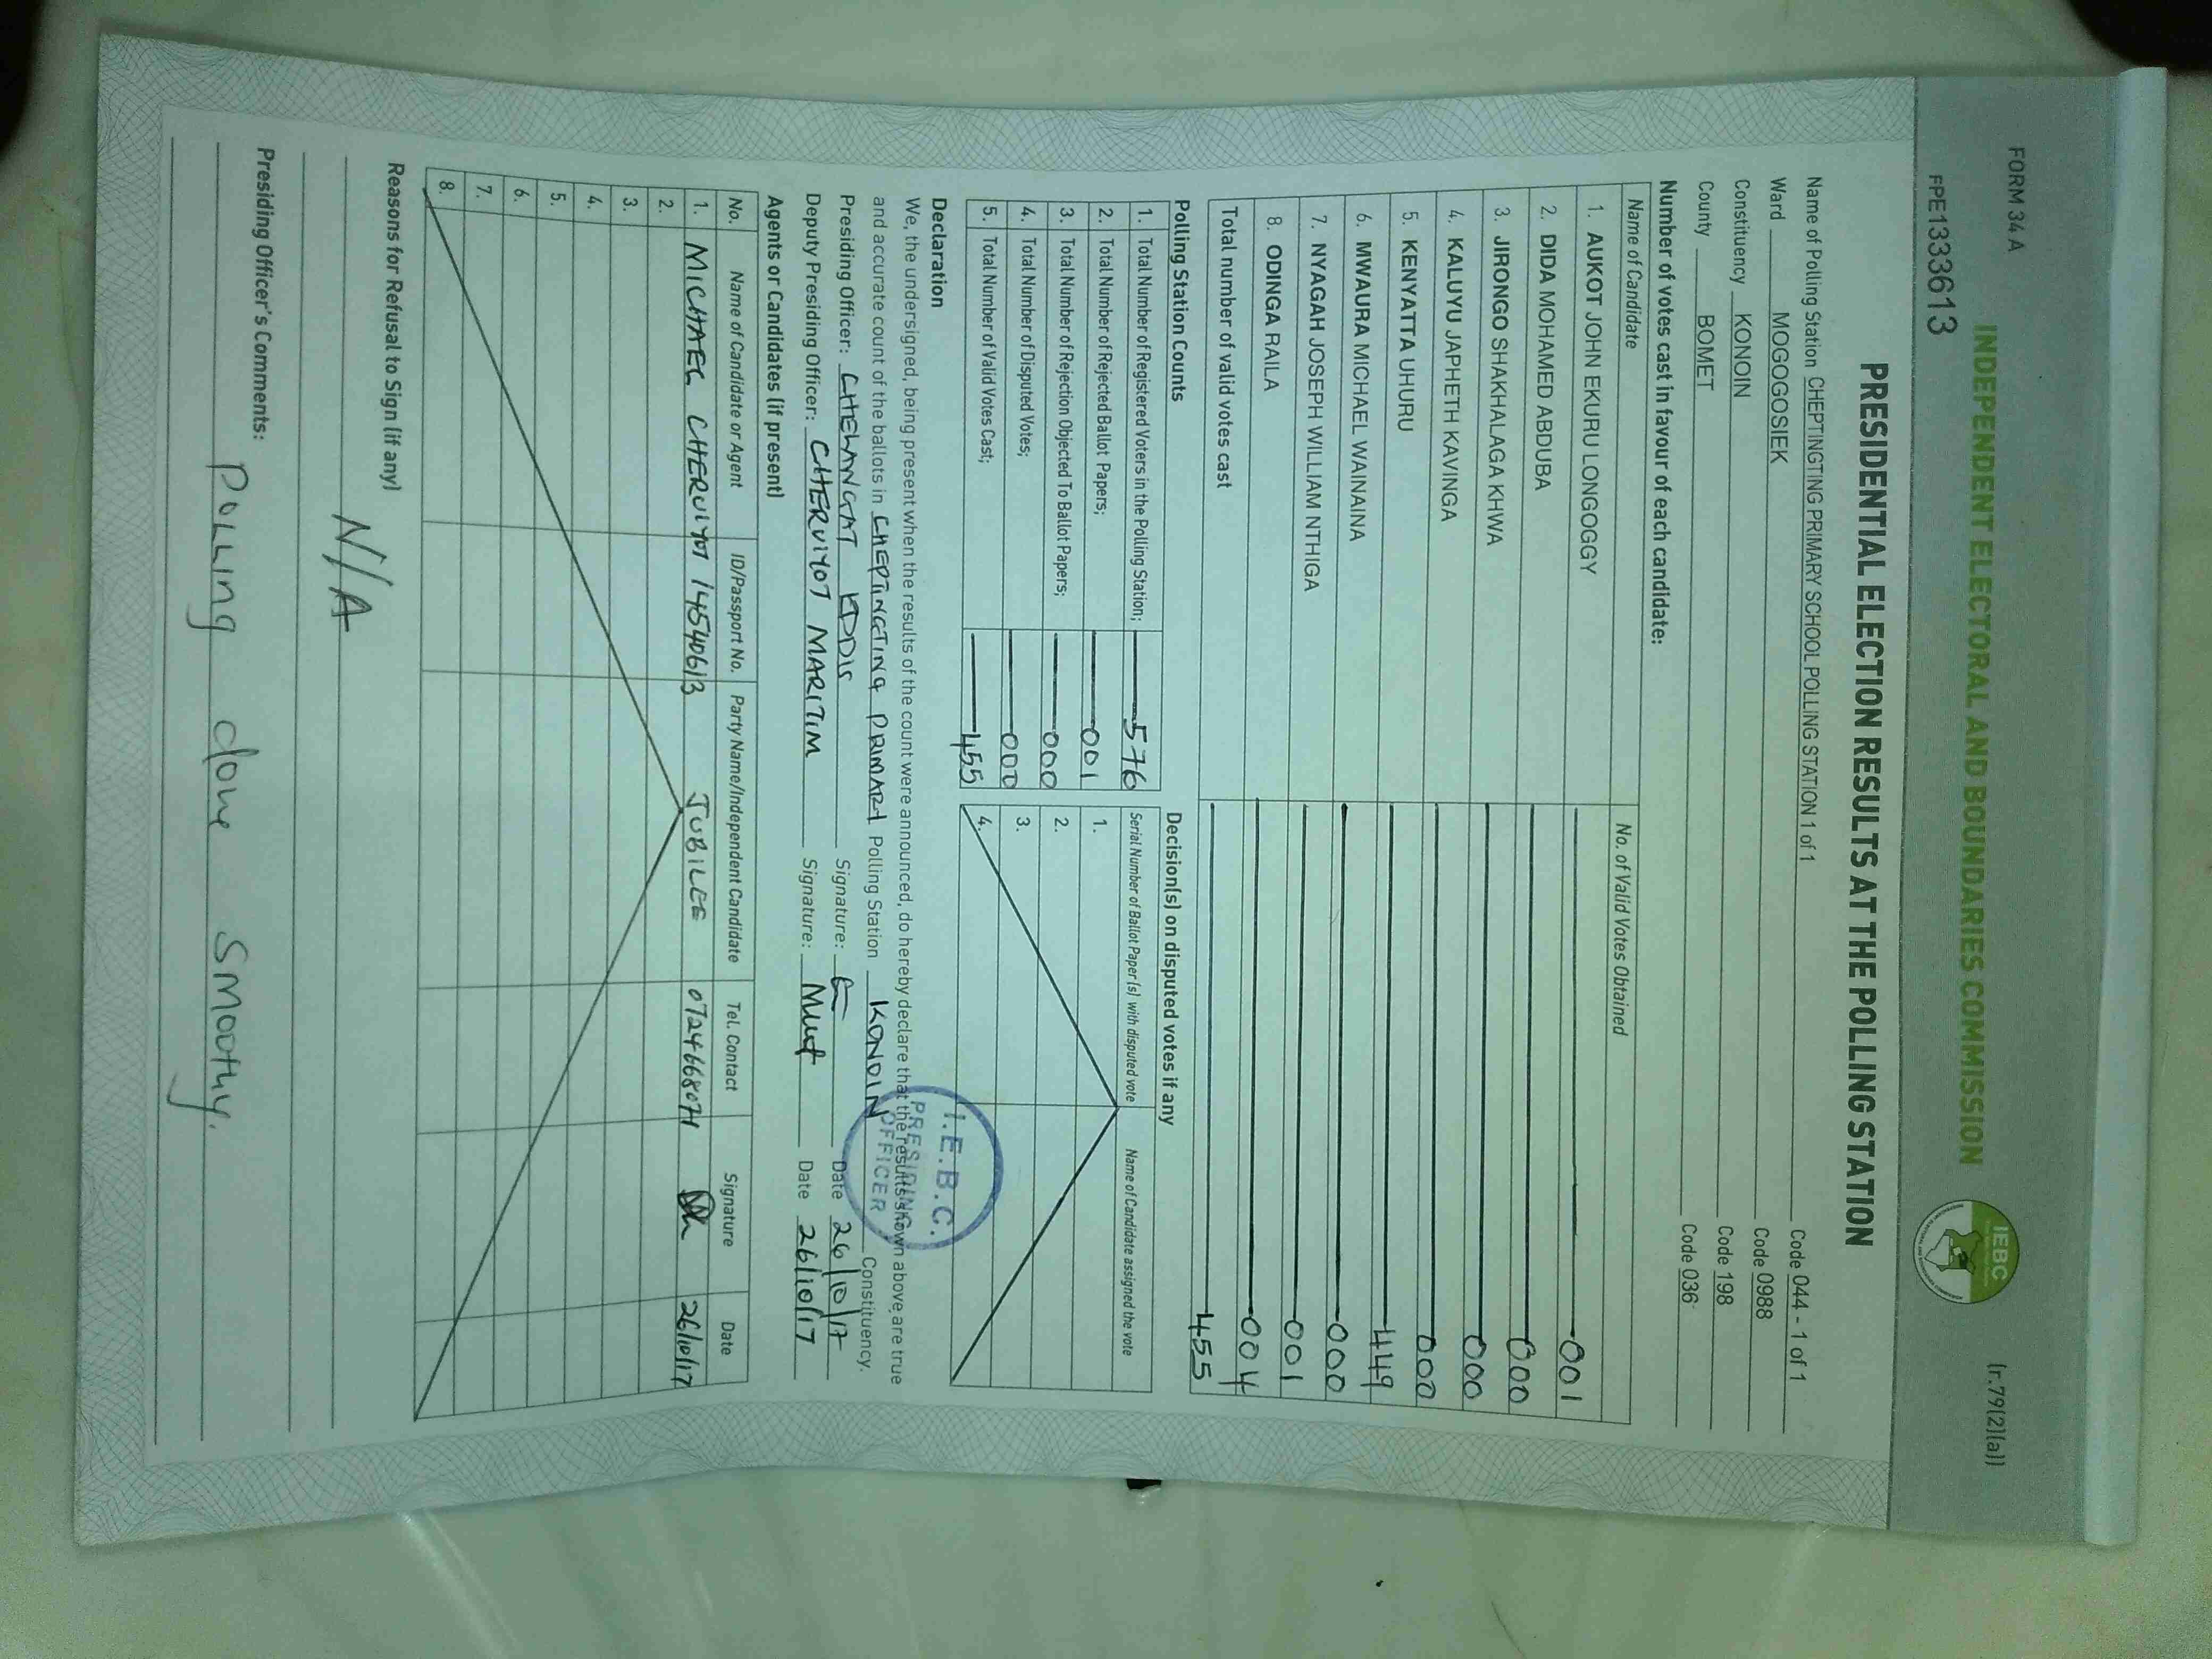 FORM 34 A
(r.79(2)(a))
INDEPENDENT ELECTORAL AND BOUNDARIES COMMISSION
IEBC
FPE1333613
PRESIDENTIAL ELECTION RESULTS AT THE POLLING STATION
Name of Polling Station CHEPTINGTING PRIMARY SCHOOL POLLING STATION 1 of 1 Code 044 - 1 of 1
Ward MOGOGOSIEK Code 0988
Constituency KONOIN Code 198
County BOMET Code 036
Number of votes cast in favour of each candidate:
Name of Candidate No. of Valid Votes Obtained
1. AUKOT JOHN EKURU LONGOGGY 001
2. DIDA MOHAMED ABDUBA 000
3. JIRONGO SHAKHALAGA KHWA 000
4. KALUYU JAPHETH KAVINGA 000
5. KENYATTA UHURU 449
6. MWAURA MICHAEL WAINAINA 000
7. NYAGAH JOSEPH WILLIAM NTHIGA 001
8. ODINGA RAILA 004
Total number of valid votes cast 455
Polling Station Counts
1. Total Number of Registered Voters in the Polling Station; 576
2. Total Number of Rejected Ballot Papers; 001
3. Total Number of Rejection Objected To Ballot Papers; 000
4. Total Number of Disputed Votes; 000
5. Total Number of Valid Votes Cast; 455
Decision(s) on disputed votes if any
Serial Number of Ballot Paper(s) with disputed vote Name of Candidate assigned the vote
1.
2.
3.
4.
Declaration
We, the undersigned, being present when the results of the count were announced, do hereby declare that the results shown above are true
and accurate count of the ballots in CHEPTINGTING PRIMARY Polling Station KONOIN Constituency.
Presiding Officer: CHELANGAT Signature: Date 26/10/17
Deputy Presiding Officer: CHERUIYOT MARITIM Signature: Date 26/10/17
I.E.B.C.
PRESIDING
OFFICER
Agents or Candidates (if present)
No. Name of Candidate or Agent ID/Passport No. Party Name/Independent Candidate Tel. Contact Signature Date
1. MICHAEL CHERUIYOT 14540613 JUBILEE 0724668071 26/10/17
2.
3.
4.
5.
6.
7.
8.
Reasons for Refusal to Sign (if any)
N/A
Presiding Officer's Comments:
Polling done smoothy.